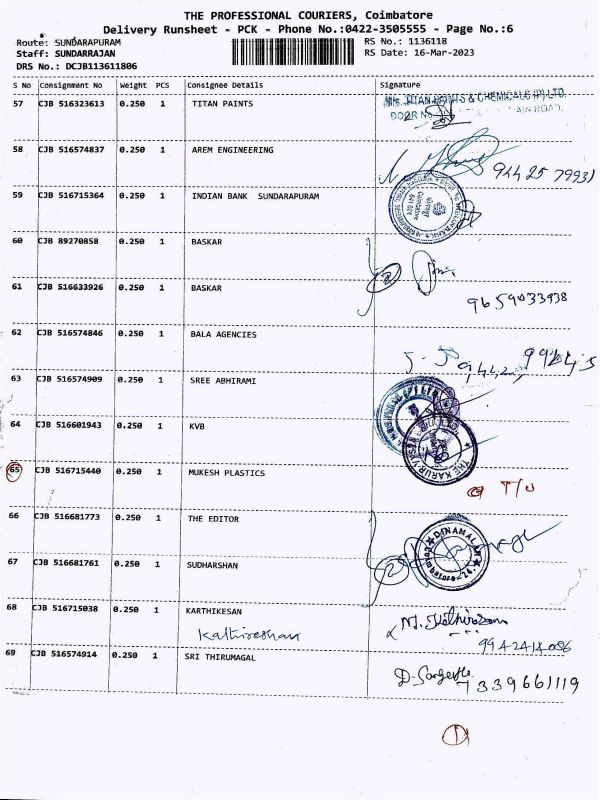 THE PROFESSIONAL COURIERS, Coimbatore
Delivery Runsheet - PCK - Phone No.:0422-3505555 - Page No.:6
Route: SUNDARAPURAM RS No.: 1136118
Staff: SUNDARRAJAN RS Date: 16-Mar-2023
DRS No.: DCJB113611806
S No Consignment No Weight PCS Consignee Details Signature
57 CJB 516323613 0.250 1 TITAN PAINTS
TITAN PAINTS & CHEMICALS (P) LTD.
DOOR No
58 CJB 516574837 0.250 1 AREM ENGINEERING
94425 79931
59 CJB 516715364 0.250 1 INDIAN BANK SUNDARAPURAM
60 CJB 89270858 0.250 1 BASKAR
2
61 CJB 516633926 0.250 1 BASKAR
9659033938
62 CJB 516574846 0.250 1 BALA AGENCIES
63 CJB 516574909 0.250 1 SREE ABHIRAMI
64 CJB 516601943 0.250 1 KVB
THE KARUR VYSYA
65 CJB 516715440 0.250 1 MUKESH PLASTICS
T/U
66 CJB 516681773 0.250 1 THE EDITOR
DINAMALAR
67 CJB 516681761 0.250 1 SUDHARSHAN
2
68 CJB 516715038 0.250 1 KARTHIKESAN
Kathireshan M. Kathiresan
9942414086
69 CJB 516574914 0.250 1 SRI THIRUMAGAL
7339661119
1